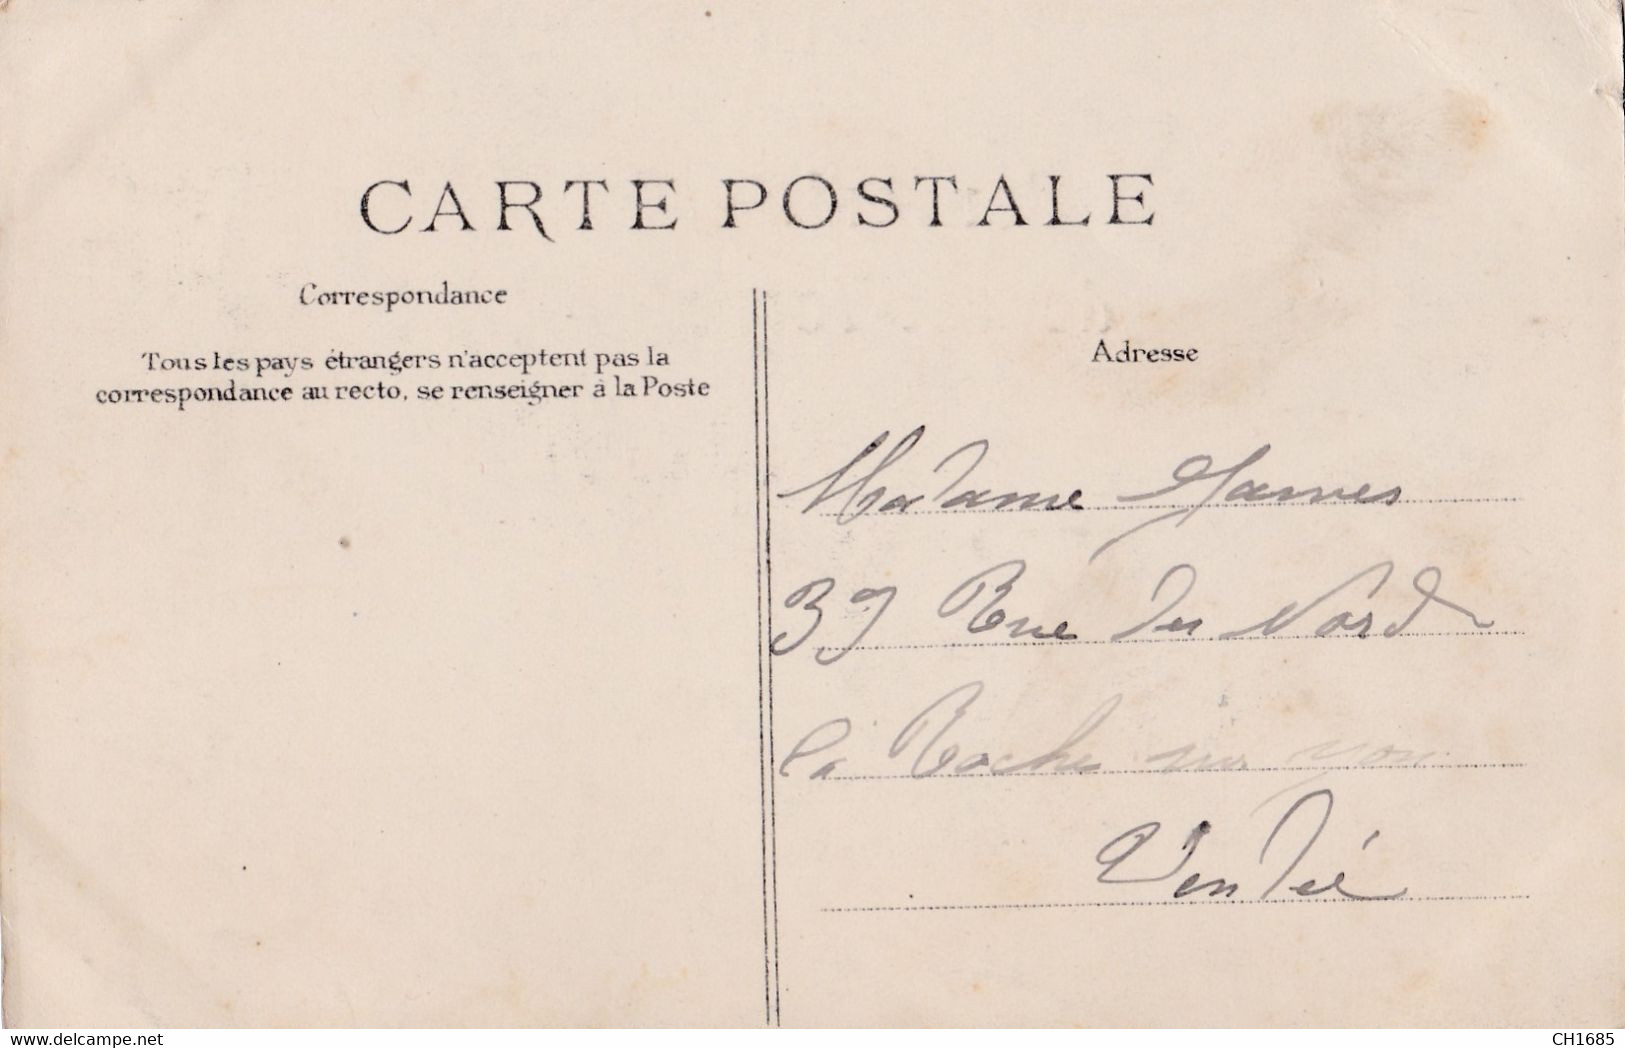 CARTE POSTALE
Correspondance
Tous les pays étrangers n'acceptent pas la
correspondance au recto, se renseigner à la Poste
Adresse
Madame
Rue du Nord
la Roche sur yon
Vendée
www.delcampe.net
CH1685